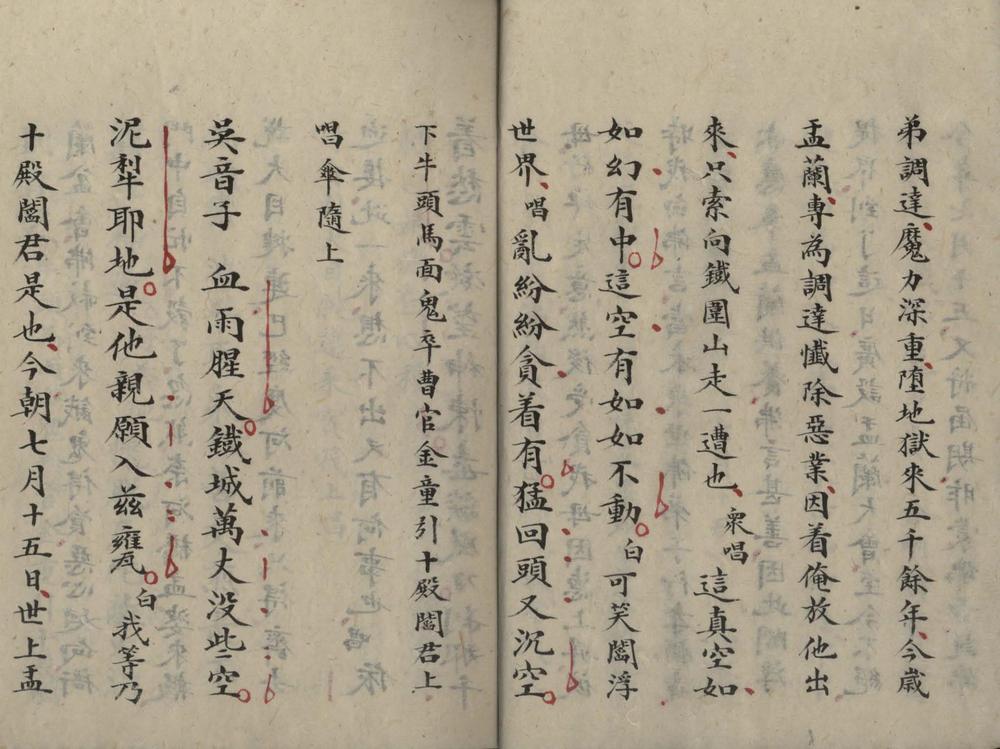 弟調達魔力深重墮地獄來五千餘年今歲
盂蘭專為調達懺除惡業因着俺放他出
來只索向鐵圍山走一遭也 衆唱 這真空如
如幻有中這空有如如不動 白 可笑閻浮
世界 唱 亂紛紛貪着有猛回頭又沉空
下牛頭馬面鬼卒曹官金童引十殿閻君上
唱傘隨上
吳音子 血雨腥天鐵城萬丈没些空
泥犁耶地是他親願入茲甕 白 我等乃
十殿閻君是也今朝七月十五日世上盂